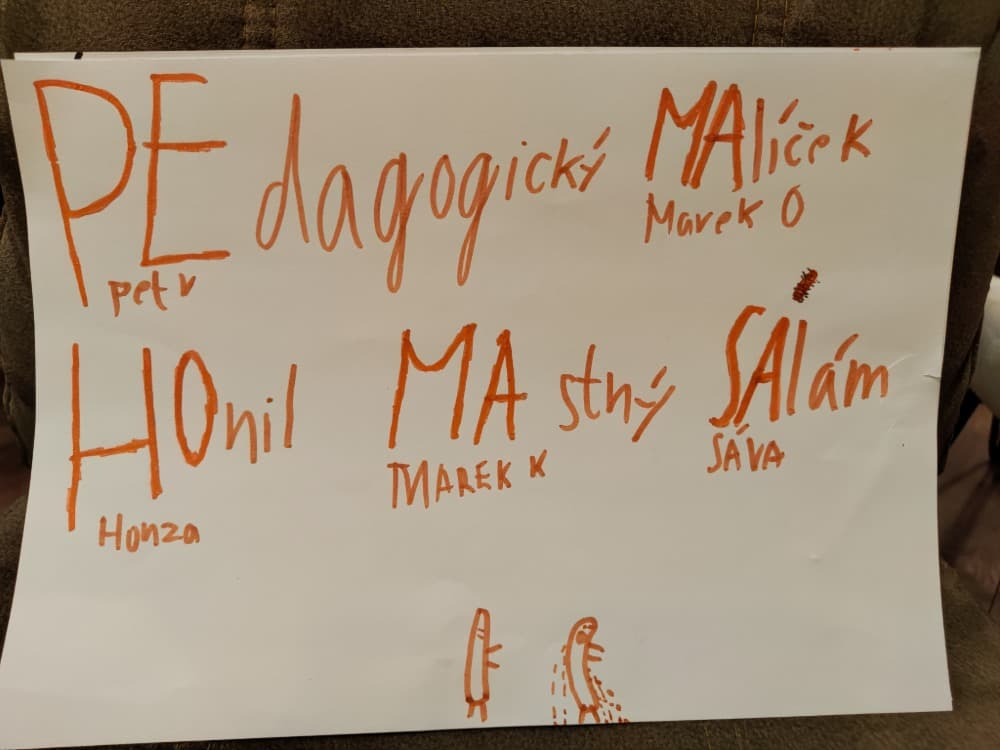 PEdagogický MAlíček
petr Marek O
HOnil MAstný SAlám
Honza MAREK K SÁVA